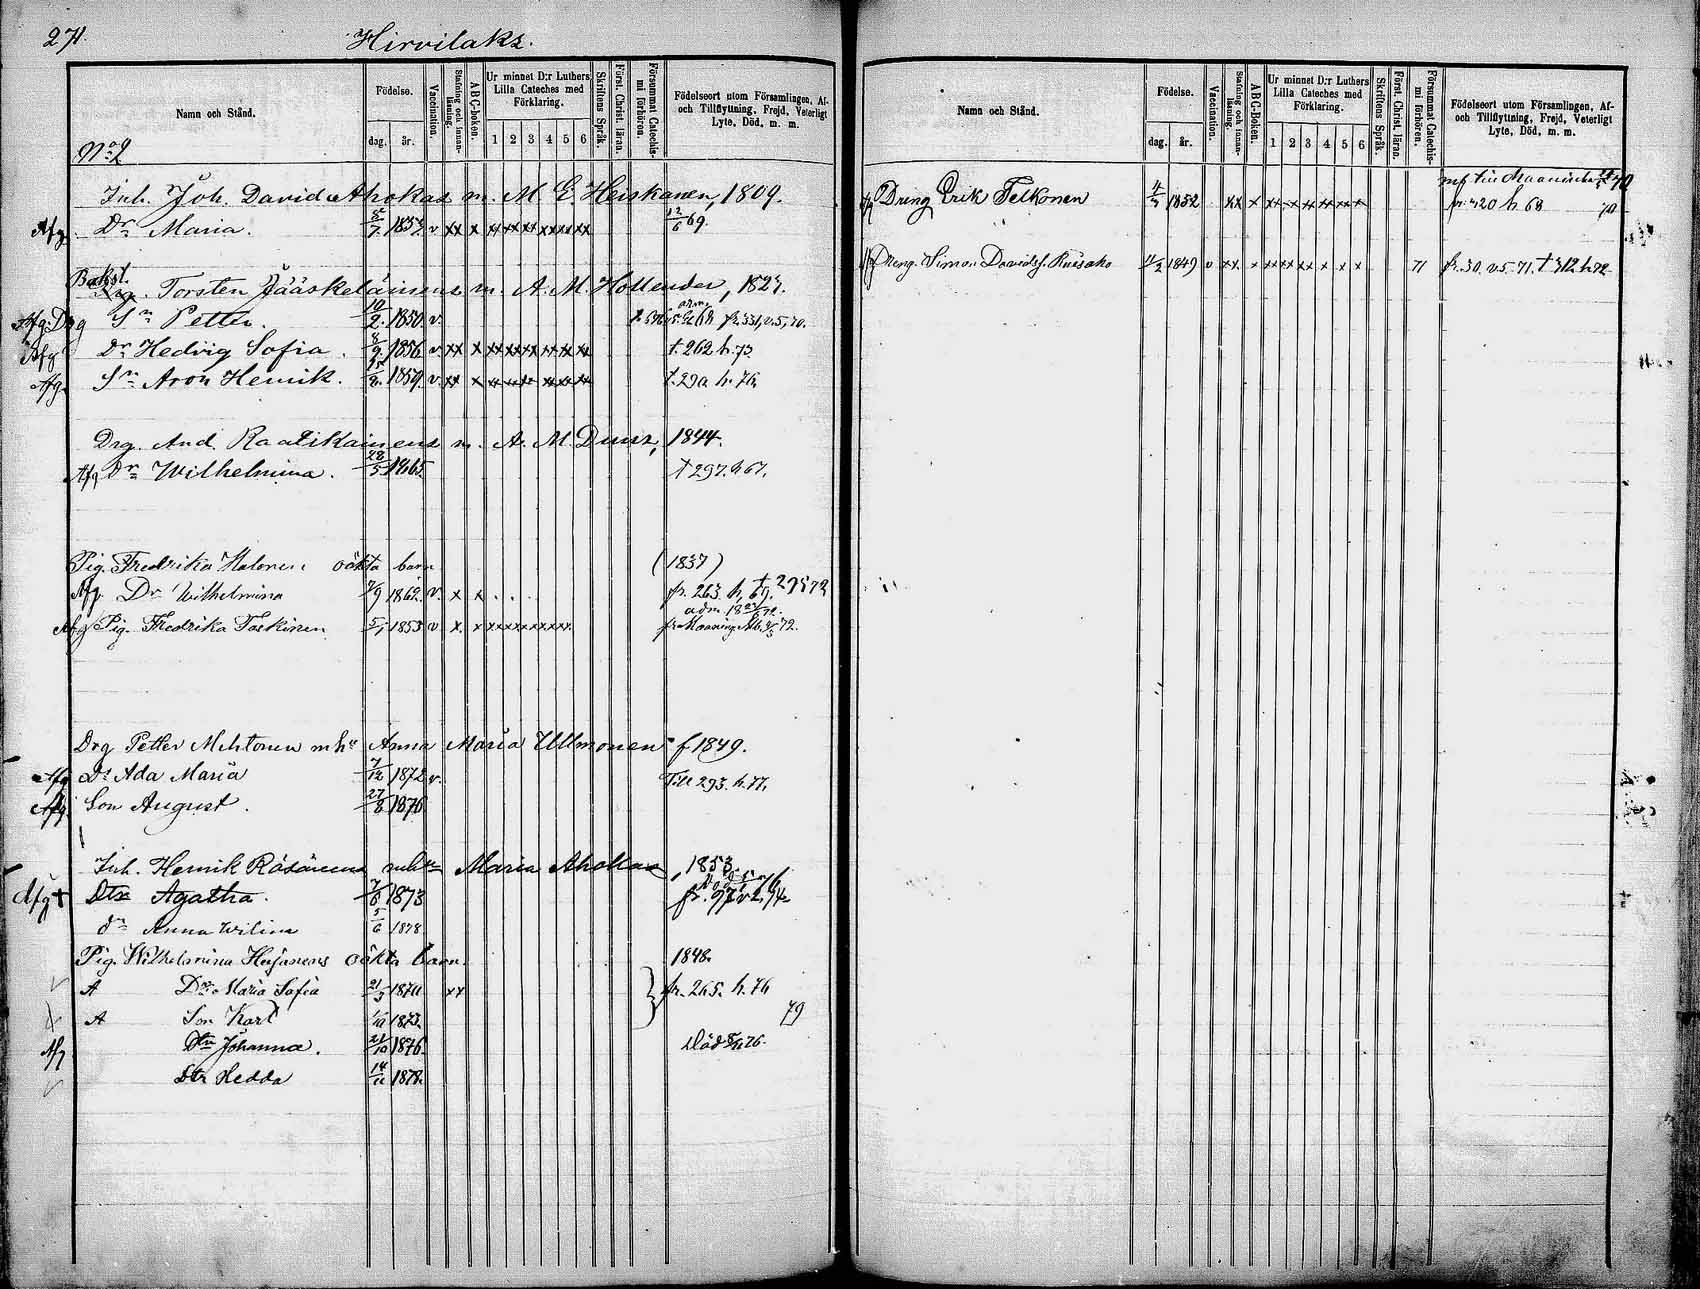 271.
Hirvilaks.
Namn och Stånd.
Födelse.
dag. år.
Vaccination.
Stafning och innanläsning.
ABC-boken.
Ur minnet D:r Luthers Lilla Cateches med Förklaring.
1 2 3 4 5 6
Skriftens Språk.
Först. Christ. läran.
Försummat Catechismi förhören.
Födelseort utom Församlingen, Af- och Tillflyttning, Frejd, Veterligt Lyte, Död, m. m.
No 2
Inh. Joh. David Ahokas m. M E Heiskanen, 1809.
Afg. Dr Maria. 7. 1853. v xx x xx xx xx xx xx xx 12/6 69.
Bakst.
Torsten Jääskeläinens m. A. M. Hollender, 1823.
Afg. Drg Sn Petter. 10/2. 1850. v.
Afg Dr Hedvig Sofia. 8/9. 1856 v xx x xx xx xx xx xx xx t. 262 h. 73.
Afg. Sn Aron Henrik. 1859. v. xx x xx xx xx xx xx xx t. 290 h. 76.
Drg. And. Raatikainens m. A. M. Duns, 1844.
Afg Dr Wilhelmina. 28/5 1865. † 297. h 67.
Pig. Fredrika Halonens oäkta barn (1837)
Afg. Dr Wilhelmina 7/9 1862. v. x x . . . fr. 263. h, 69.
Afg Pig. Fredrika Toskinen 5/1 1853 v x. x x x x x x x x x
Drg Petter Mehtonen m hu Anna Maria Ullmonen f 1849.
Afg Dr Ada Maria 7/12 1872 v. Till 293. h. 77.
Afg. Son August. 27/8 1876
Inh. Henrik Räsänens m hu Maria Ahokas, 1853.
Afg † Dtr Agatha. 7/6 1873 fr. 97 v 2. 74
dr Anna Wilina 5/6 1878
Pig. Wilhelmina Hujanens oäkta barn. 1848.
A Dr Maria Sofia 1870 xx } fr. 265. h. 76
A Son Karl 1873. 79
Afg Dtr Johanna. 1876. död
Dtr Hedda 14/11 1878.
Namn och Stånd.
Födelse.
dag. år.
Vaccination.
Stafning och innanläsning.
ABC-boken.
Ur minnet D:r Luthers Lilla Cateches med Förklaring.
1 2 3 4 5 6
Skriftens Språk.
Först. Christ. läran.
Försummat Catechismi förhören.
Födelseort utom Församlingen, Af- och Tillflyttning, Frejd, Veterligt Lyte, Död, m. m.
Dreng Erik Pelkonen 1852 xx x xx xx xx xx xx h 68
Dreng. Simon Davidsf. 1849 v xx. x xx xx xx x x x 71 fr. 30. v. 5. 71. † 312. h. 72.